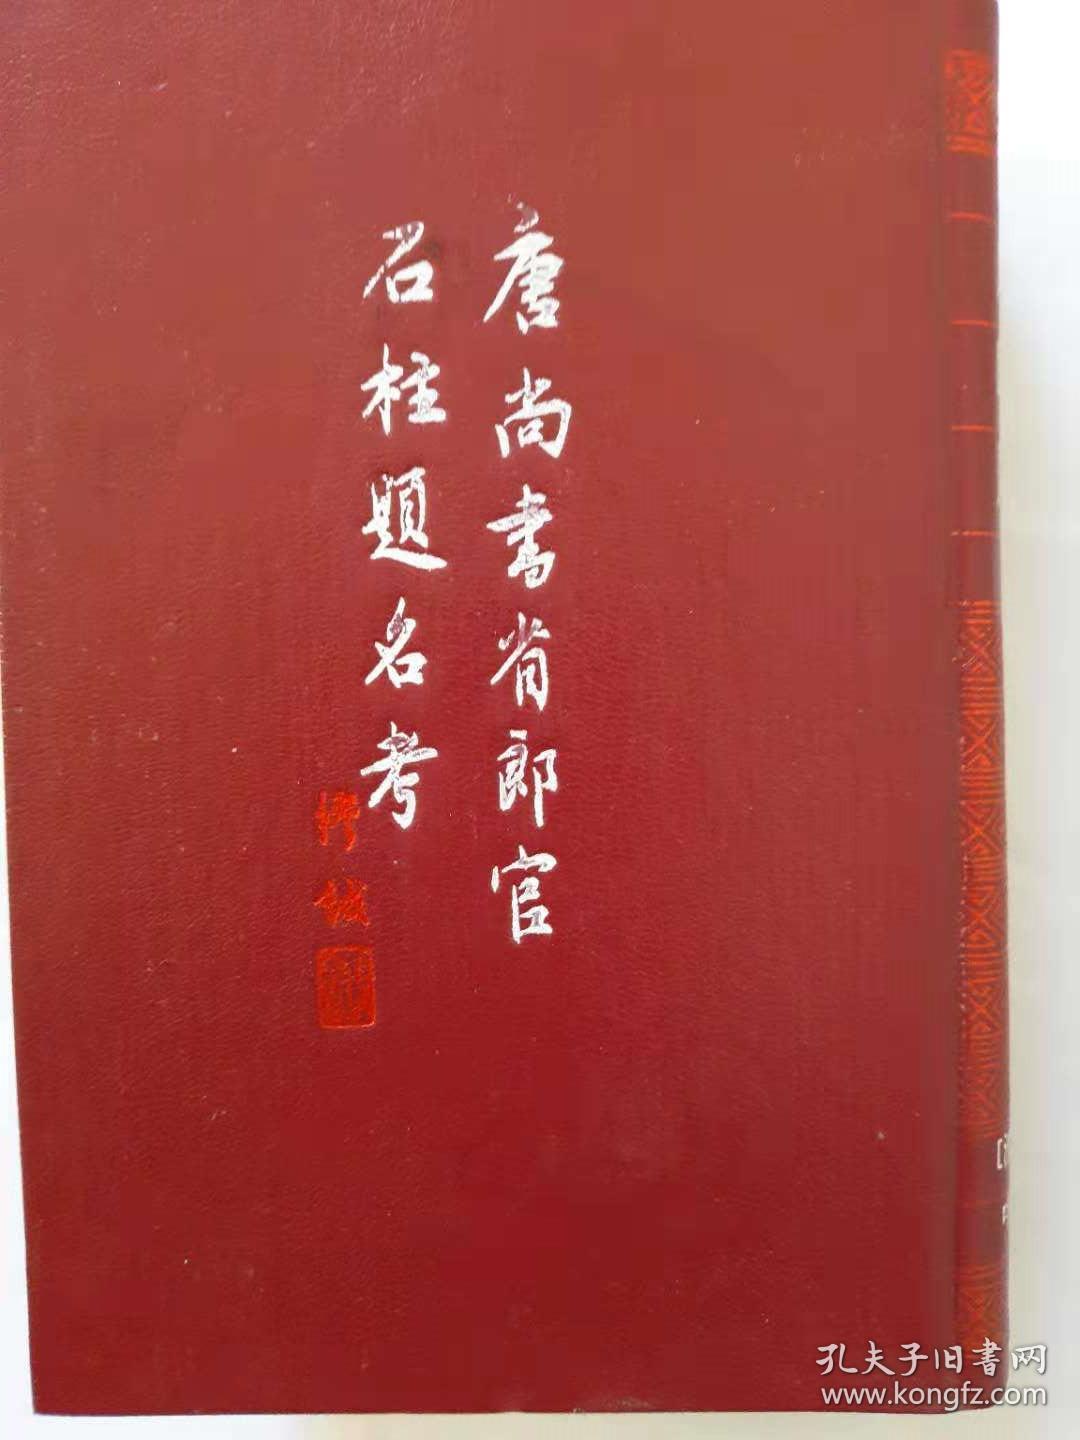 唐尚書省郎官
石柱題名考
孔夫子旧書网
www.kongfz.com